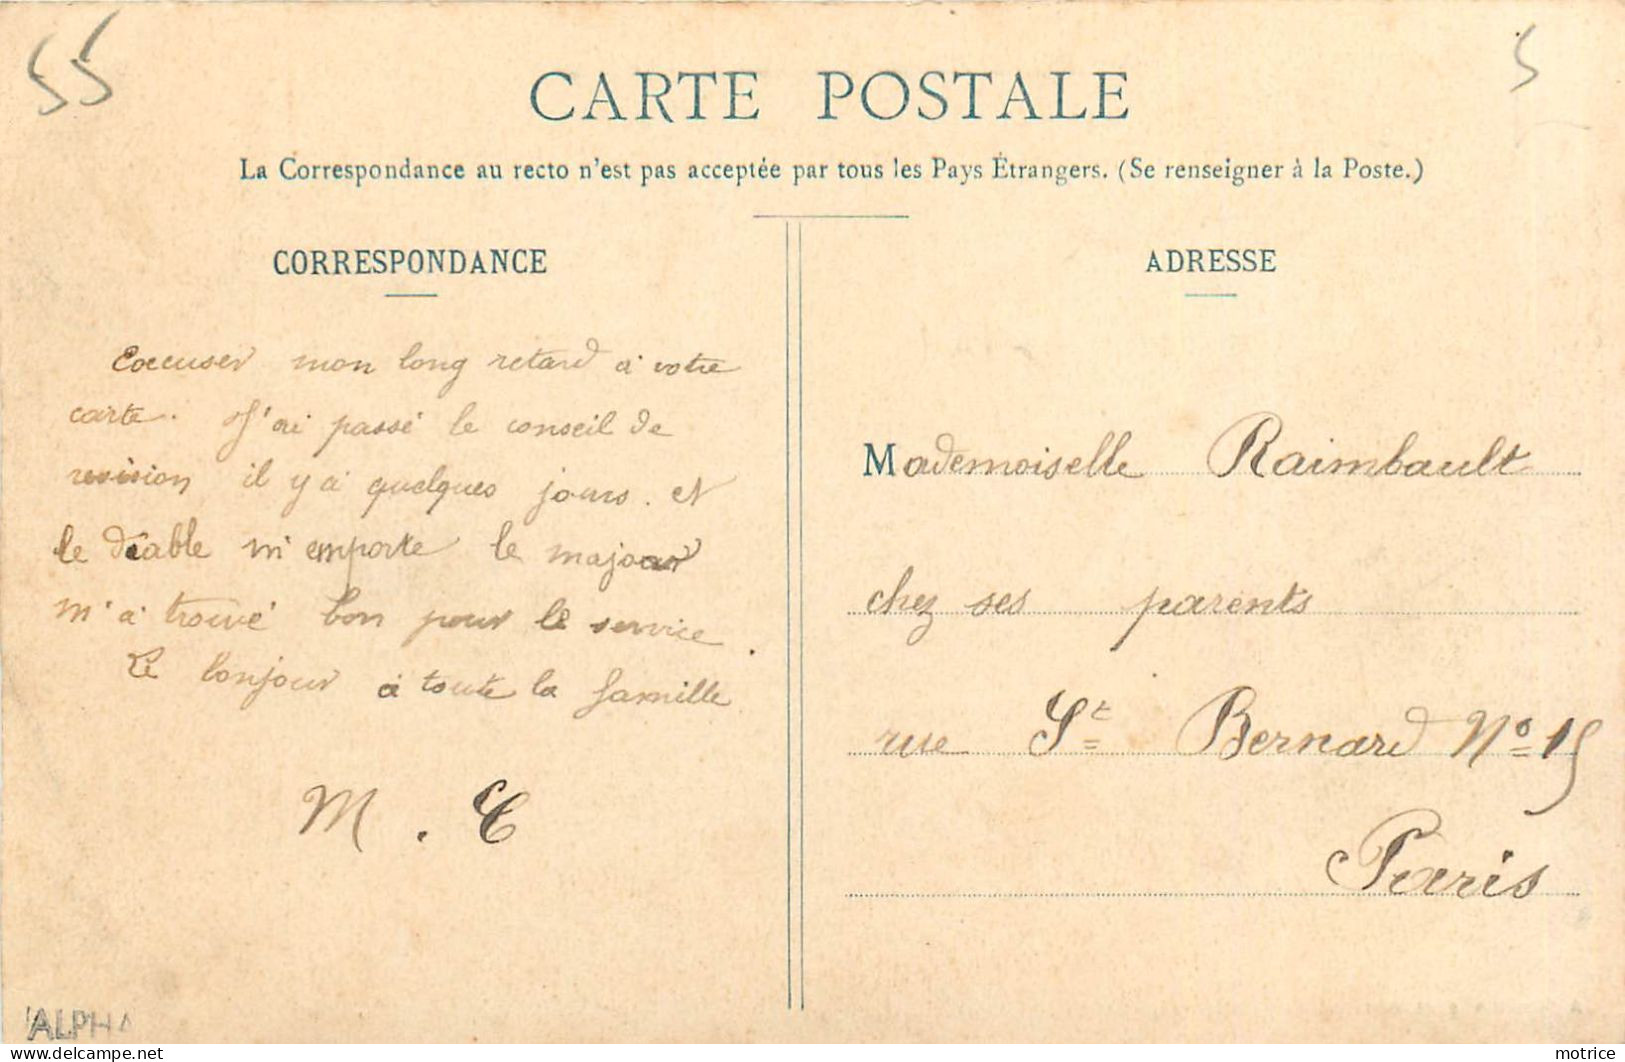 55
5
CARTE POSTALE
La Correspondance au recto n'est pas acceptée par tous les Pays Étrangers. (Se renseigner à la Poste.)
CORRESPONDANCE
Exccuser mon long retard à votre
carte. J'ai passé le conseil de
revision il y a quelques jours. et
le diable m'emporte le majoor
m'a trouvé bon pour le service.
Le bonjour à toute la famille
M. C
ADRESSE
Mademoiselle Raimbault
chez ses parents
rue St Bernard No 15
Paris
ALPHA
motrice